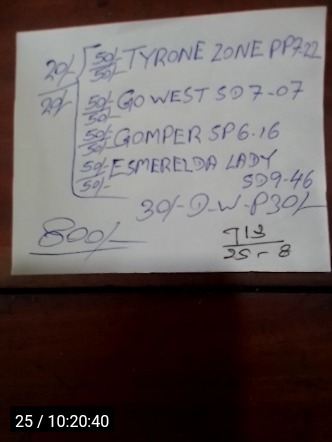 20/- 50/- TYRONE ZONE PP7.22
20/- 50/-
50/- GO WEST SD 7-07
50/-
50/- GOMPER SP 6.16
50/-
50/- ESMERELDA LADY
50/- SD 9-46
30/- D-W-P 30/-
800/-
713
25-8
25 / 10:20:40